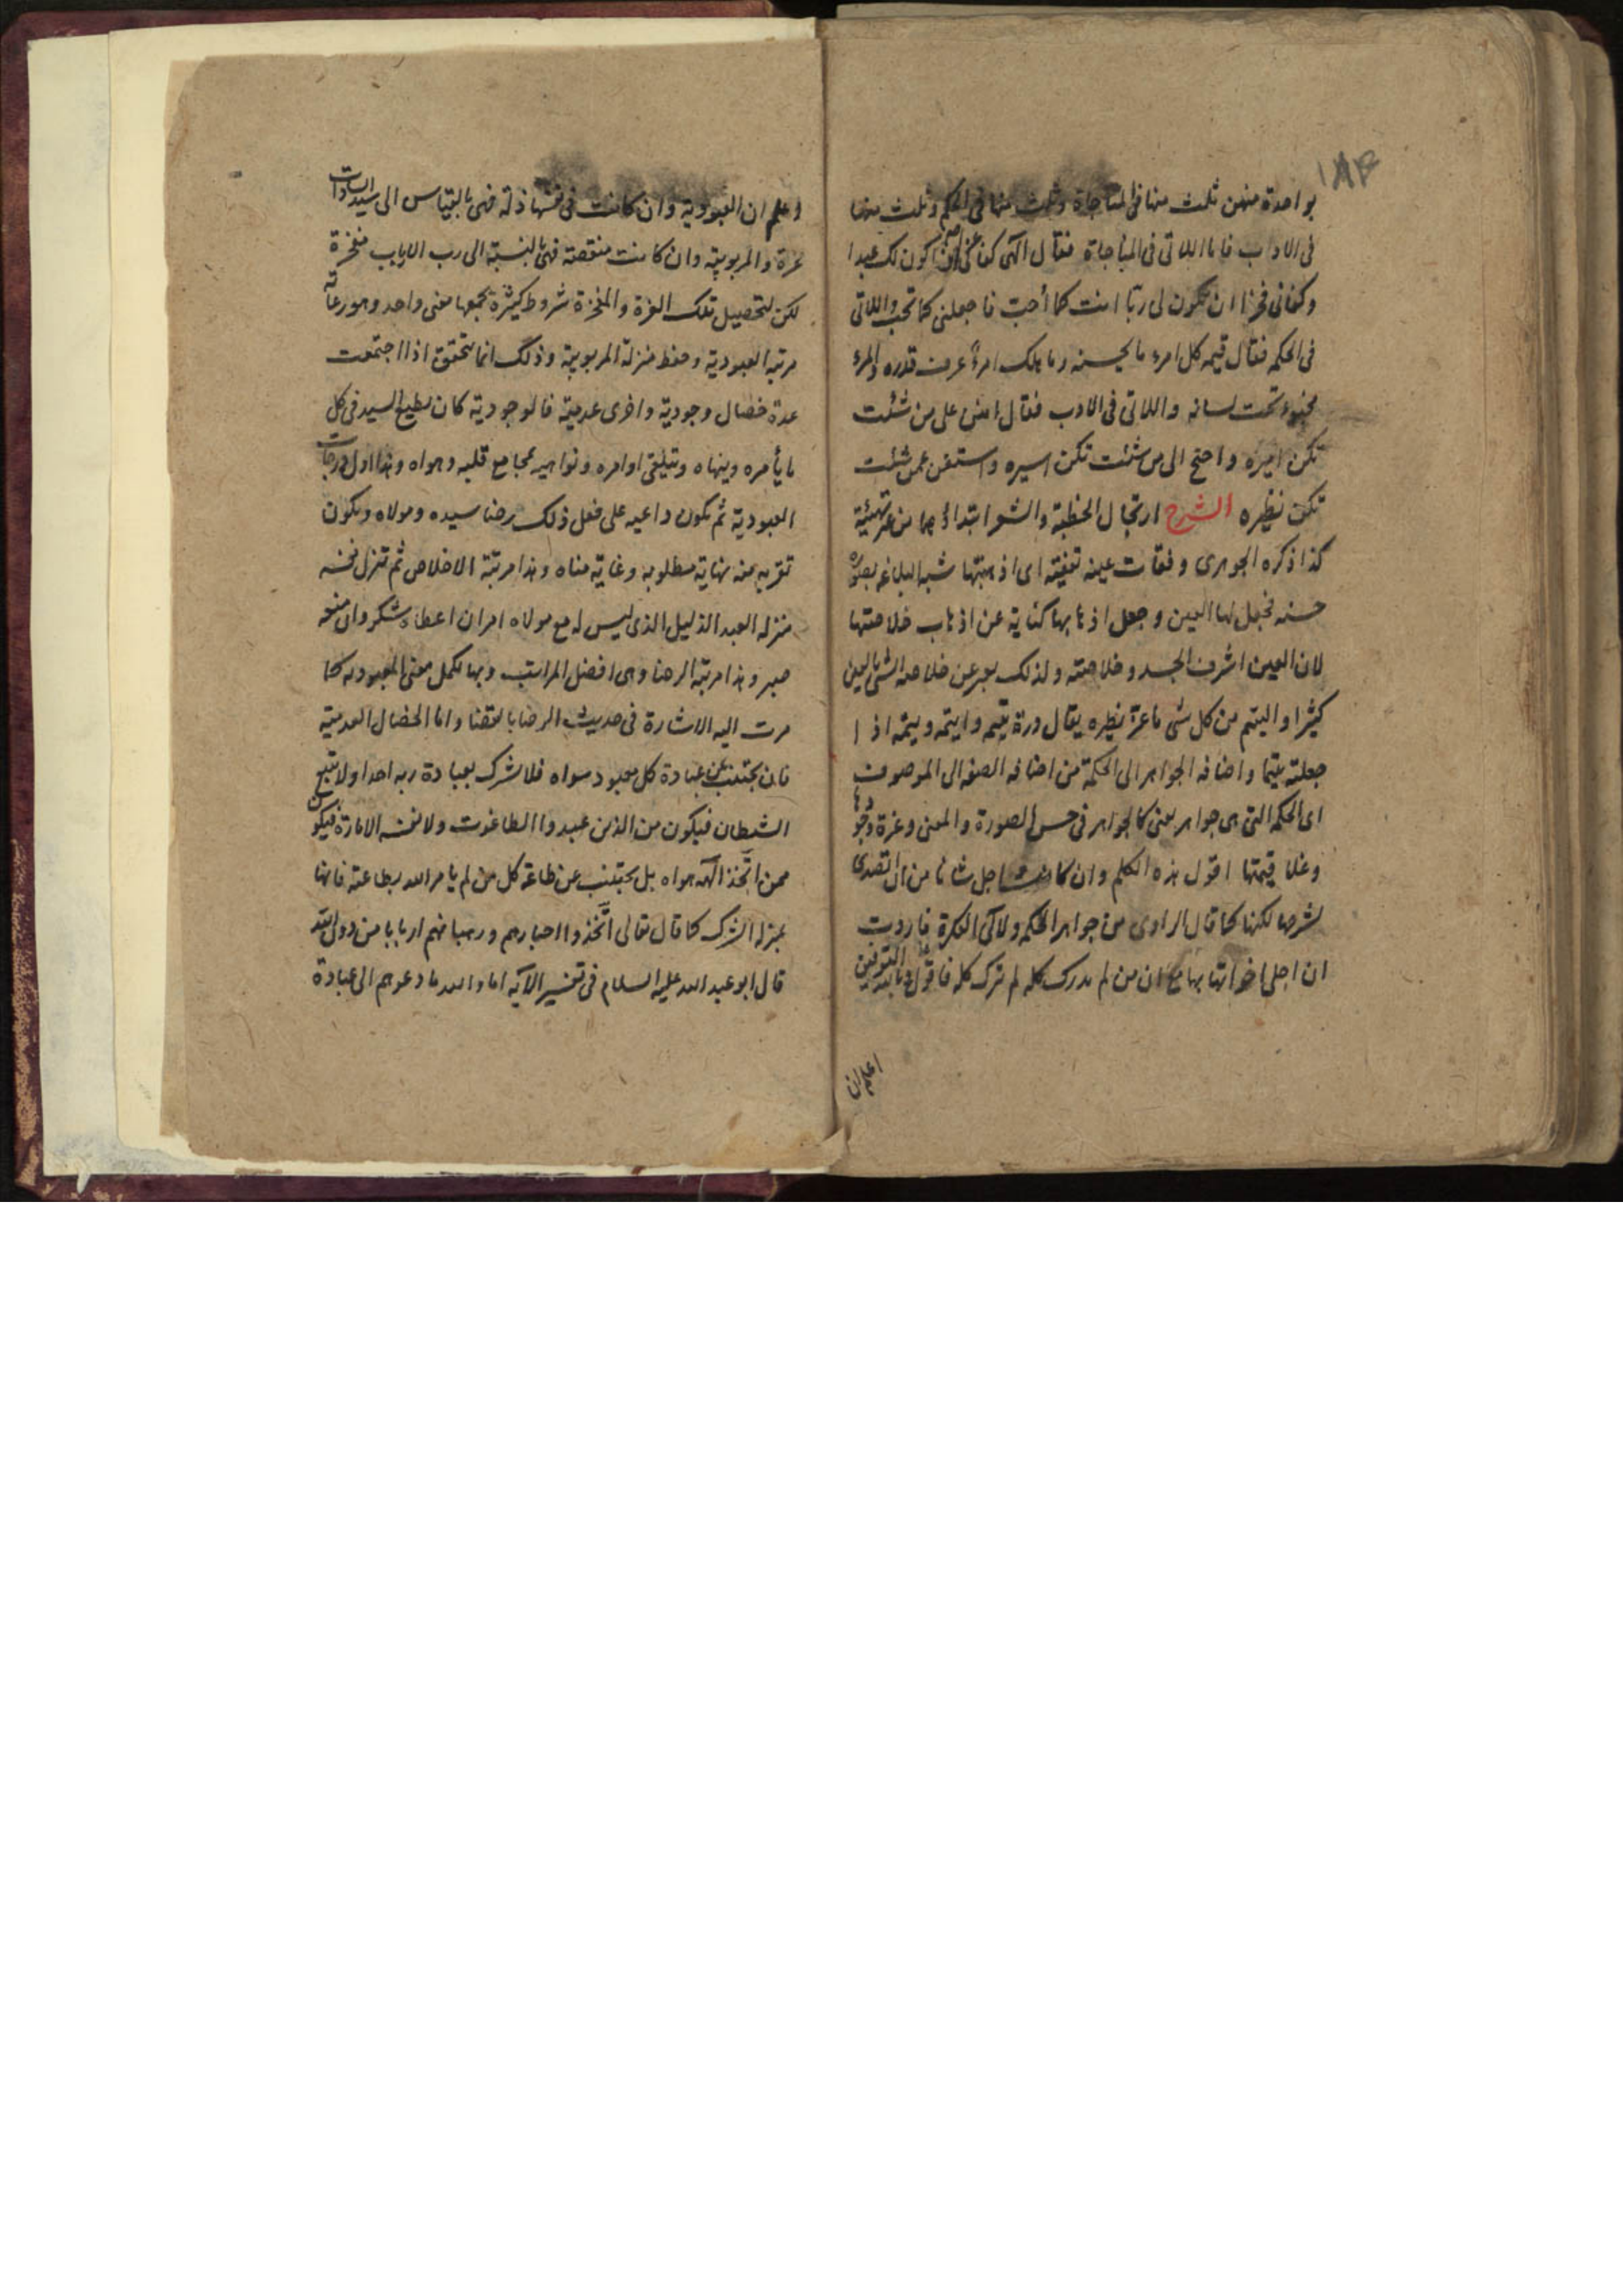 ١٨٣
بواحدة منهن ثلث منها فى المناجاة وثلث منها فى الحكم وثلث منها
فى الاداب فاما اللاتى فى المناجاة فقال الهى كفانى عزا ان اكون لك عبدا
وكفانى فخرا ان تكون لى ربا انت كما أحبّ فاجعلنى كما تحب واللاتى
فى الحكم فقال قيمه كل امرء ما يحسنه وما هلك امرأ عرف قدره والمرء
مخبوء تحت لسانه واللاتى فى الادب فقال امنن على من شئت
تكن اميره واحتج الى من شئت تكن اسيره واستغن عمن شئت
تكن نظيره الشرح ارتجال الخطبة والشعر ابتداؤهما من غير تهيئية
كذا ذكره الجوهرى وفقات عينه تفقية اى اذهبتها شبه البلاغه بصورة
حسنه فجعل لها العين وجعل اذهابها كناية عن اذهاب خلاصتها
لان العين اشرف الجسد وخلاصته ولذلك يعبر عن خلاصة الشئ بالعين
كثيرا واليتم من كل شى ما عزّ نظيره يقال درة يتيمه وايتمه ويتمه اذا
جعلته يتيما واضافه الجواهر الى الحكمة من اضافه الصفه الى الموصوف
اى الحكمه التى هى جواهر يعنى كالجواهر فى حسن الصورة والمعنى وعزة وجودها
وغلا قيمتها اقول هذه الكلم وان كانت اجل شانا من ان اتصدى
لشرحها لكنها كما قال الراوى من جواهر الحكم ولآلى الفكرة فاردت
ان احلى اخواتها بها مع ان من لم يدرك كله لم يترك كله فاقول وبالله التوفيق
اعلم ان
اعلم ان العبودية وان كانت فى نفسها ذلة فهى بالقياس الى سيد السادات
عزة والمربوبية وان كانت منقصته فهى بالنسبة الى رب الارباب مفخرة
لكن لتحصيل تلك العزة والمفخرة شروط كثيرة يجمعها معنى واحد وهو رعاية
مرتبة العبودية وحفظ منزلة المربوبية وذلك انما يتحقق اذا اجتمعت
عدة خصال وجودية واخرى عدمية فالوجودية كان يطيع السيد فى كل
ما يأمره وينهاه ويتلقى اوامره ونواهيه بمجامع قلبه وهواه وهذا اول درجات
العبودية ثم يكون داعيه على فعل ذلك رضا سيده ومولاه ويكون
تقربه منه نهاية مطلوبه وغاية مناه وهذا مرتبة الاخلاص ثم تنزل نفسه
منزله العبد الذليل الذى ليس له مع مولاه امر ان اعطاه شكر وان منعه
صبر وهذا مرتبة الرضا وهى افضل المراتب وبها يكمل معنى العبوديه كما
مرت اليه الاشارة فى حديث الرضا بالقضا واما الخصال العدمية
فان يجتنب عن عبادة كل معبود سواه فلا يشرك بعبادة ربه احدا ولا يتبع
الشيطان فيكون من الذين عبدوا الطاغوت ولا نفسه الامارة فيكون
ممن اتّخذ الهه هواه بل يجتنب عن طاعة كل من لم يامر الله بطاعته فانها
بمنزلة الشرك كما قال تعالى اتّخذوا احبارهم ورهبانهم اربابا من دون الله
قال ابو عبد الله عليه السلام فى تفسير الآية اما والله ما دعوهم الى عبادة